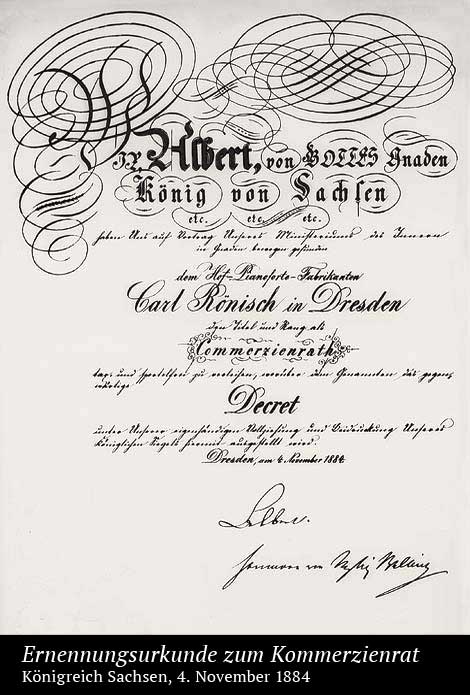 WIR Albert, von GOTTES Gnaden
König von Sachsen
etc. etc. etc.
haben Uns auf Vortrag Unseres Ministeriums des Innern
in Gnaden bewogen gefunden
dem Hof-Pianoforte-Fabrikanten
Carl Rönisch in Dresden
den Titel und Rang als
Commerzienrath
tax- und sportelfrei zu verleihen, worüber dem Genannten das gegen-
wärtige
Decret
unter Unserer eigenhändigen Vollziehung und Beidruckung Unseres
Königlichen Siegels hiermit ausgestellt wird.
Dresden, am 4. November 1884
Albert.
Ernennungsurkunde zum Kommerzienrat
Königreich Sachsen, 4. November 1884